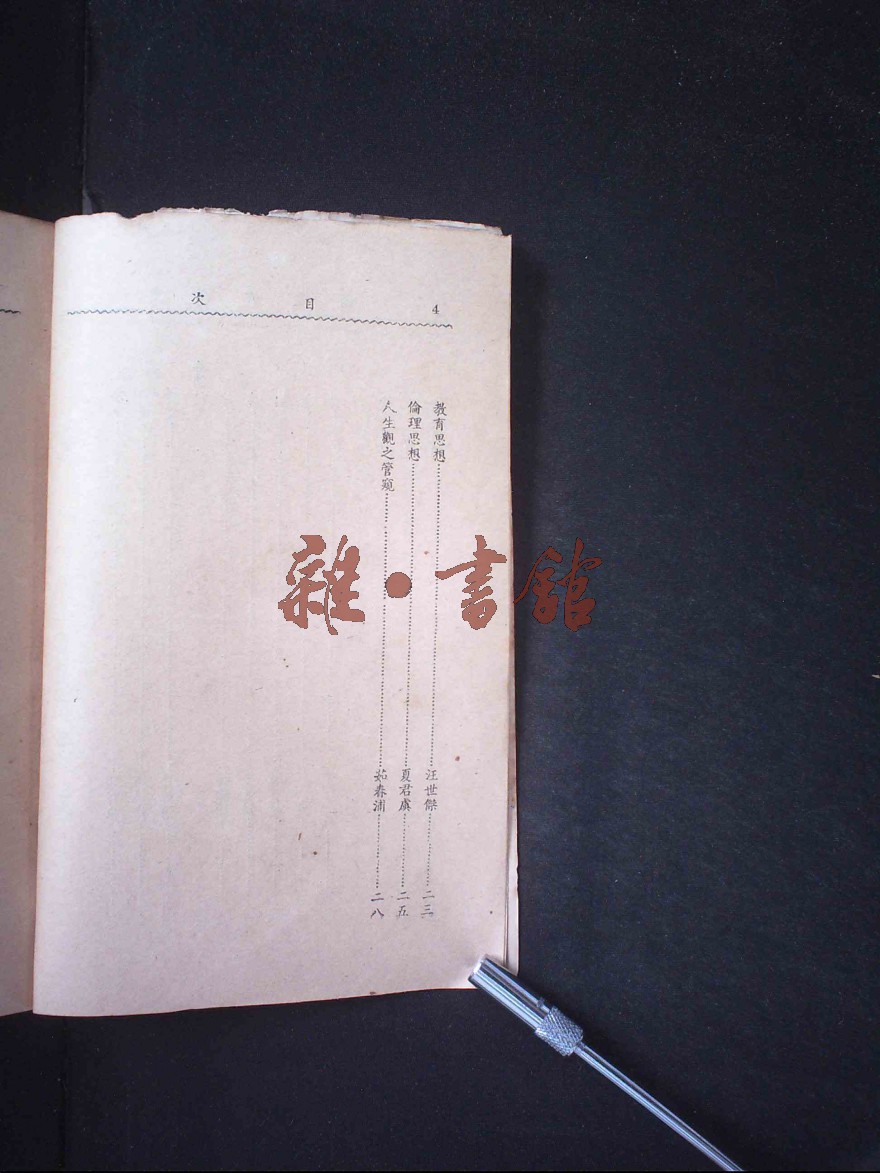 目次
4
教育思想……汪世傑……二三
倫理思想……夏君虞……二五
人生觀之管窺……茹春浦……二八
雜·書館